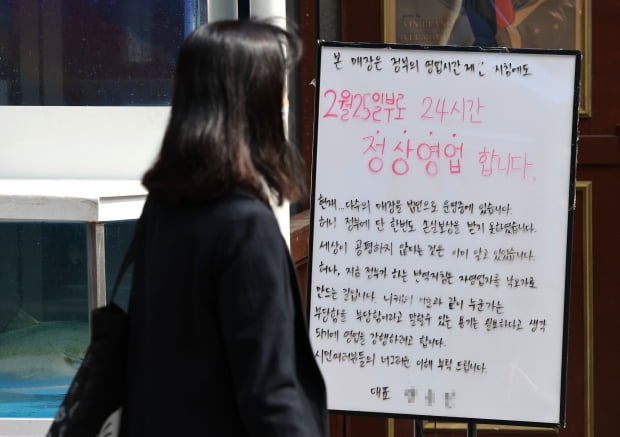 VIN BLANC
VERMOUTH
본 매장은 정부의 영업시간 제한 지침에도
2월 25일부로 24시간
정상영업 합니다.
현재... 다수의 매장을 법인으로 운영중에 있습니다.
허나 정부에 단 한번도 손실보상을 받지 못하였습니다.
세상이 공평하지 않다는 것은 이미 알고 있었습니다.
허나, 지금 정부가 하는 방역지침은 자영업자를 낙오자로
만드는 길입니다. 같이 누군가는
부당함을 부당함이라고 말할수 있는 용기는 필요하다고 생각
되기에 영업을 강행하려고 합니다.
시민여러분들의 너그러운 이해 부탁 드립니다.
대표